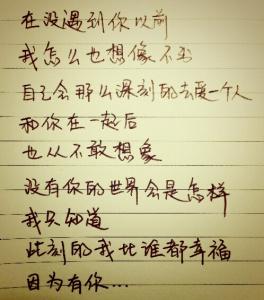 在没遇到你以前
我怎么也想像不出
自己会那么深刻的去爱一个人
和你在一起后
也从不敢想象
没有你的世界会是怎样
我只知道
此刻的我比谁都幸福
因为有你...